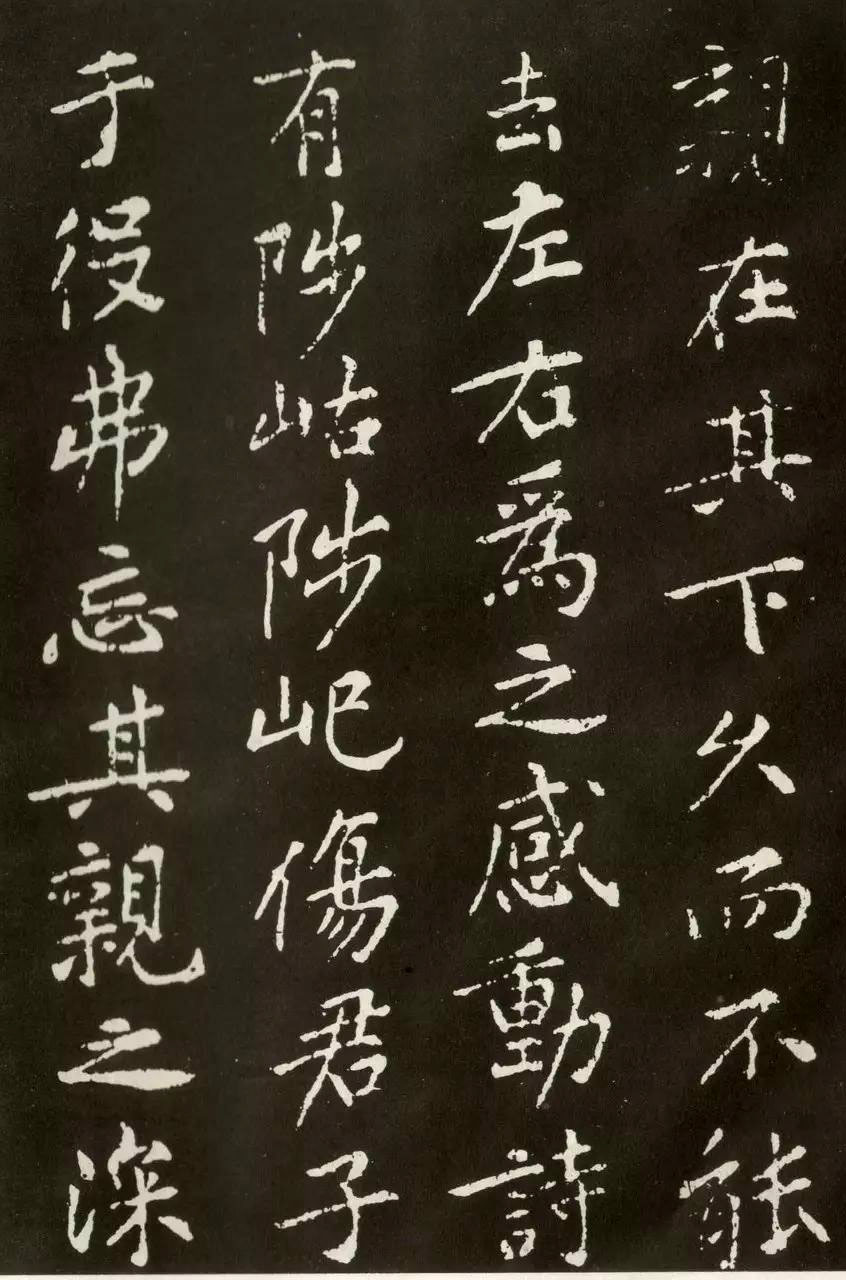 親在其下久而不能
去左右爲之感動詩
有陟岵陟屺傷君子
于役弗忘其親之深